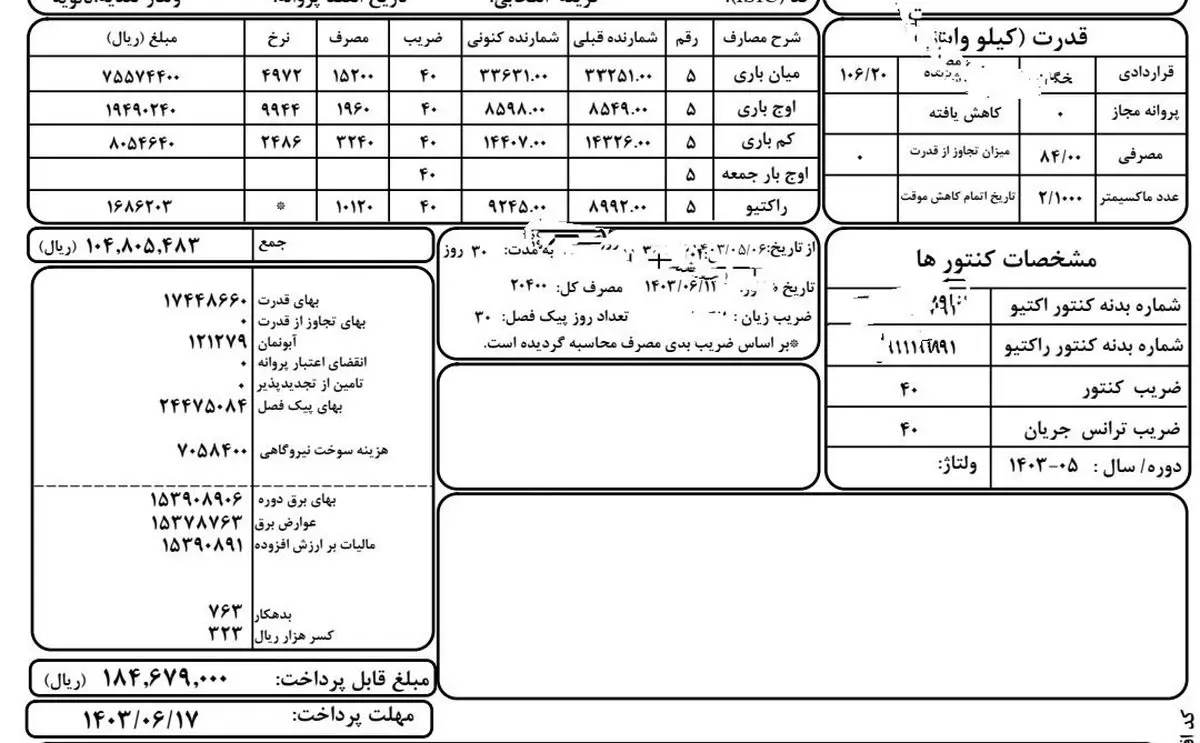 قدرت (کیلو وات)
قراردادی ۱۰۶/۲۰
پروانه مجاز ۰ کاهش یافته
مصرفی ۸۴/۰۰ میزان تجاوز از قدرت ۰
عدد ماکسیمتر ۲/۱۰۰۰ تاریخ اتمام کاهش موقت
شرح مصارف رقم شمارنده قبلی شمارنده کنونی ضریب مصرف نرخ مبلغ (ریال)
میان باری ۵ ۳۳۲۵۱.۰۰ ۳۳۶۳۱.۰۰ ۴۰ ۱۵۲۰۰ ۴۹۷۲ ۷۵۵۷۴۴۰۰
اوج باری ۵ ۸۵۴۹.۰۰ ۸۵۹۸.۰۰ ۴۰ ۱۹۶۰ ۹۹۴۴ ۱۹۴۹۰۲۴۰
کم باری ۵ ۱۴۳۲۶.۰۰ ۱۴۴۰۷.۰۰ ۴۰ ۳۲۴۰ ۲۴۸۶ ۸۰۵۴۶۴۰
اوج بار جمعه ۵ ۴۰
راکتیو ۵ ۸۹۹۲.۰۰ ۹۲۴۵.۰۰ ۴۰ ۱۰۱۲۰ * ۱۶۸۶۲۰۳
مشخصات کنتور ها
شماره بدنه کنتور اکتیو
شماره بدنه کنتور راکتیو
ضریب کنتور ۴۰
ضریب ترانس جریان ۴۰
دوره/ سال : ۱۴۰۳-۰۵ ولتاژ:
از تاریخ: ۱۴۰۳/۰۵/۰۶ به مدت: ۳۰ روز
تاریخ ۱۴۰۳/۰۶/۱۲ مصرف کل: ۲۰۴۰۰
ضریب زیان : تعداد روز پیک فصل: ۳۰
*بر اساس ضریب بدی مصرف محاسبه گردیده است.
جمع ۱۰۴,۸۰۵,۴۸۳ (ریال)
بهای قدرت ۱۷۴۴۸۶۶۰
بهای تجاوز از قدرت ۰
آبونمان ۱۲۱۲۷۹
انقضای اعتبار پروانه ۰
تامین از تجدیدپذیر ۰
بهای پیک فصل ۲۴۴۷۵۰۸۴
هزینه سوخت نیروگاهی ۷۰۵۸۴۰۰
بهای برق دوره ۱۵۳۹۰۸۹۰۶
عوارض برق ۱۵۳۷۸۷۶۳
مالیات بر ارزش افزوده ۱۵۳۹۰۸۹۱
بدهکار ۷۶۳
کسر هزار ریال ۳۲۳
مبلغ قابل پرداخت: ۱۸۴,۶۷۹,۰۰۰ (ریال)
مهلت پرداخت: ۱۴۰۳/۰۶/۱۷